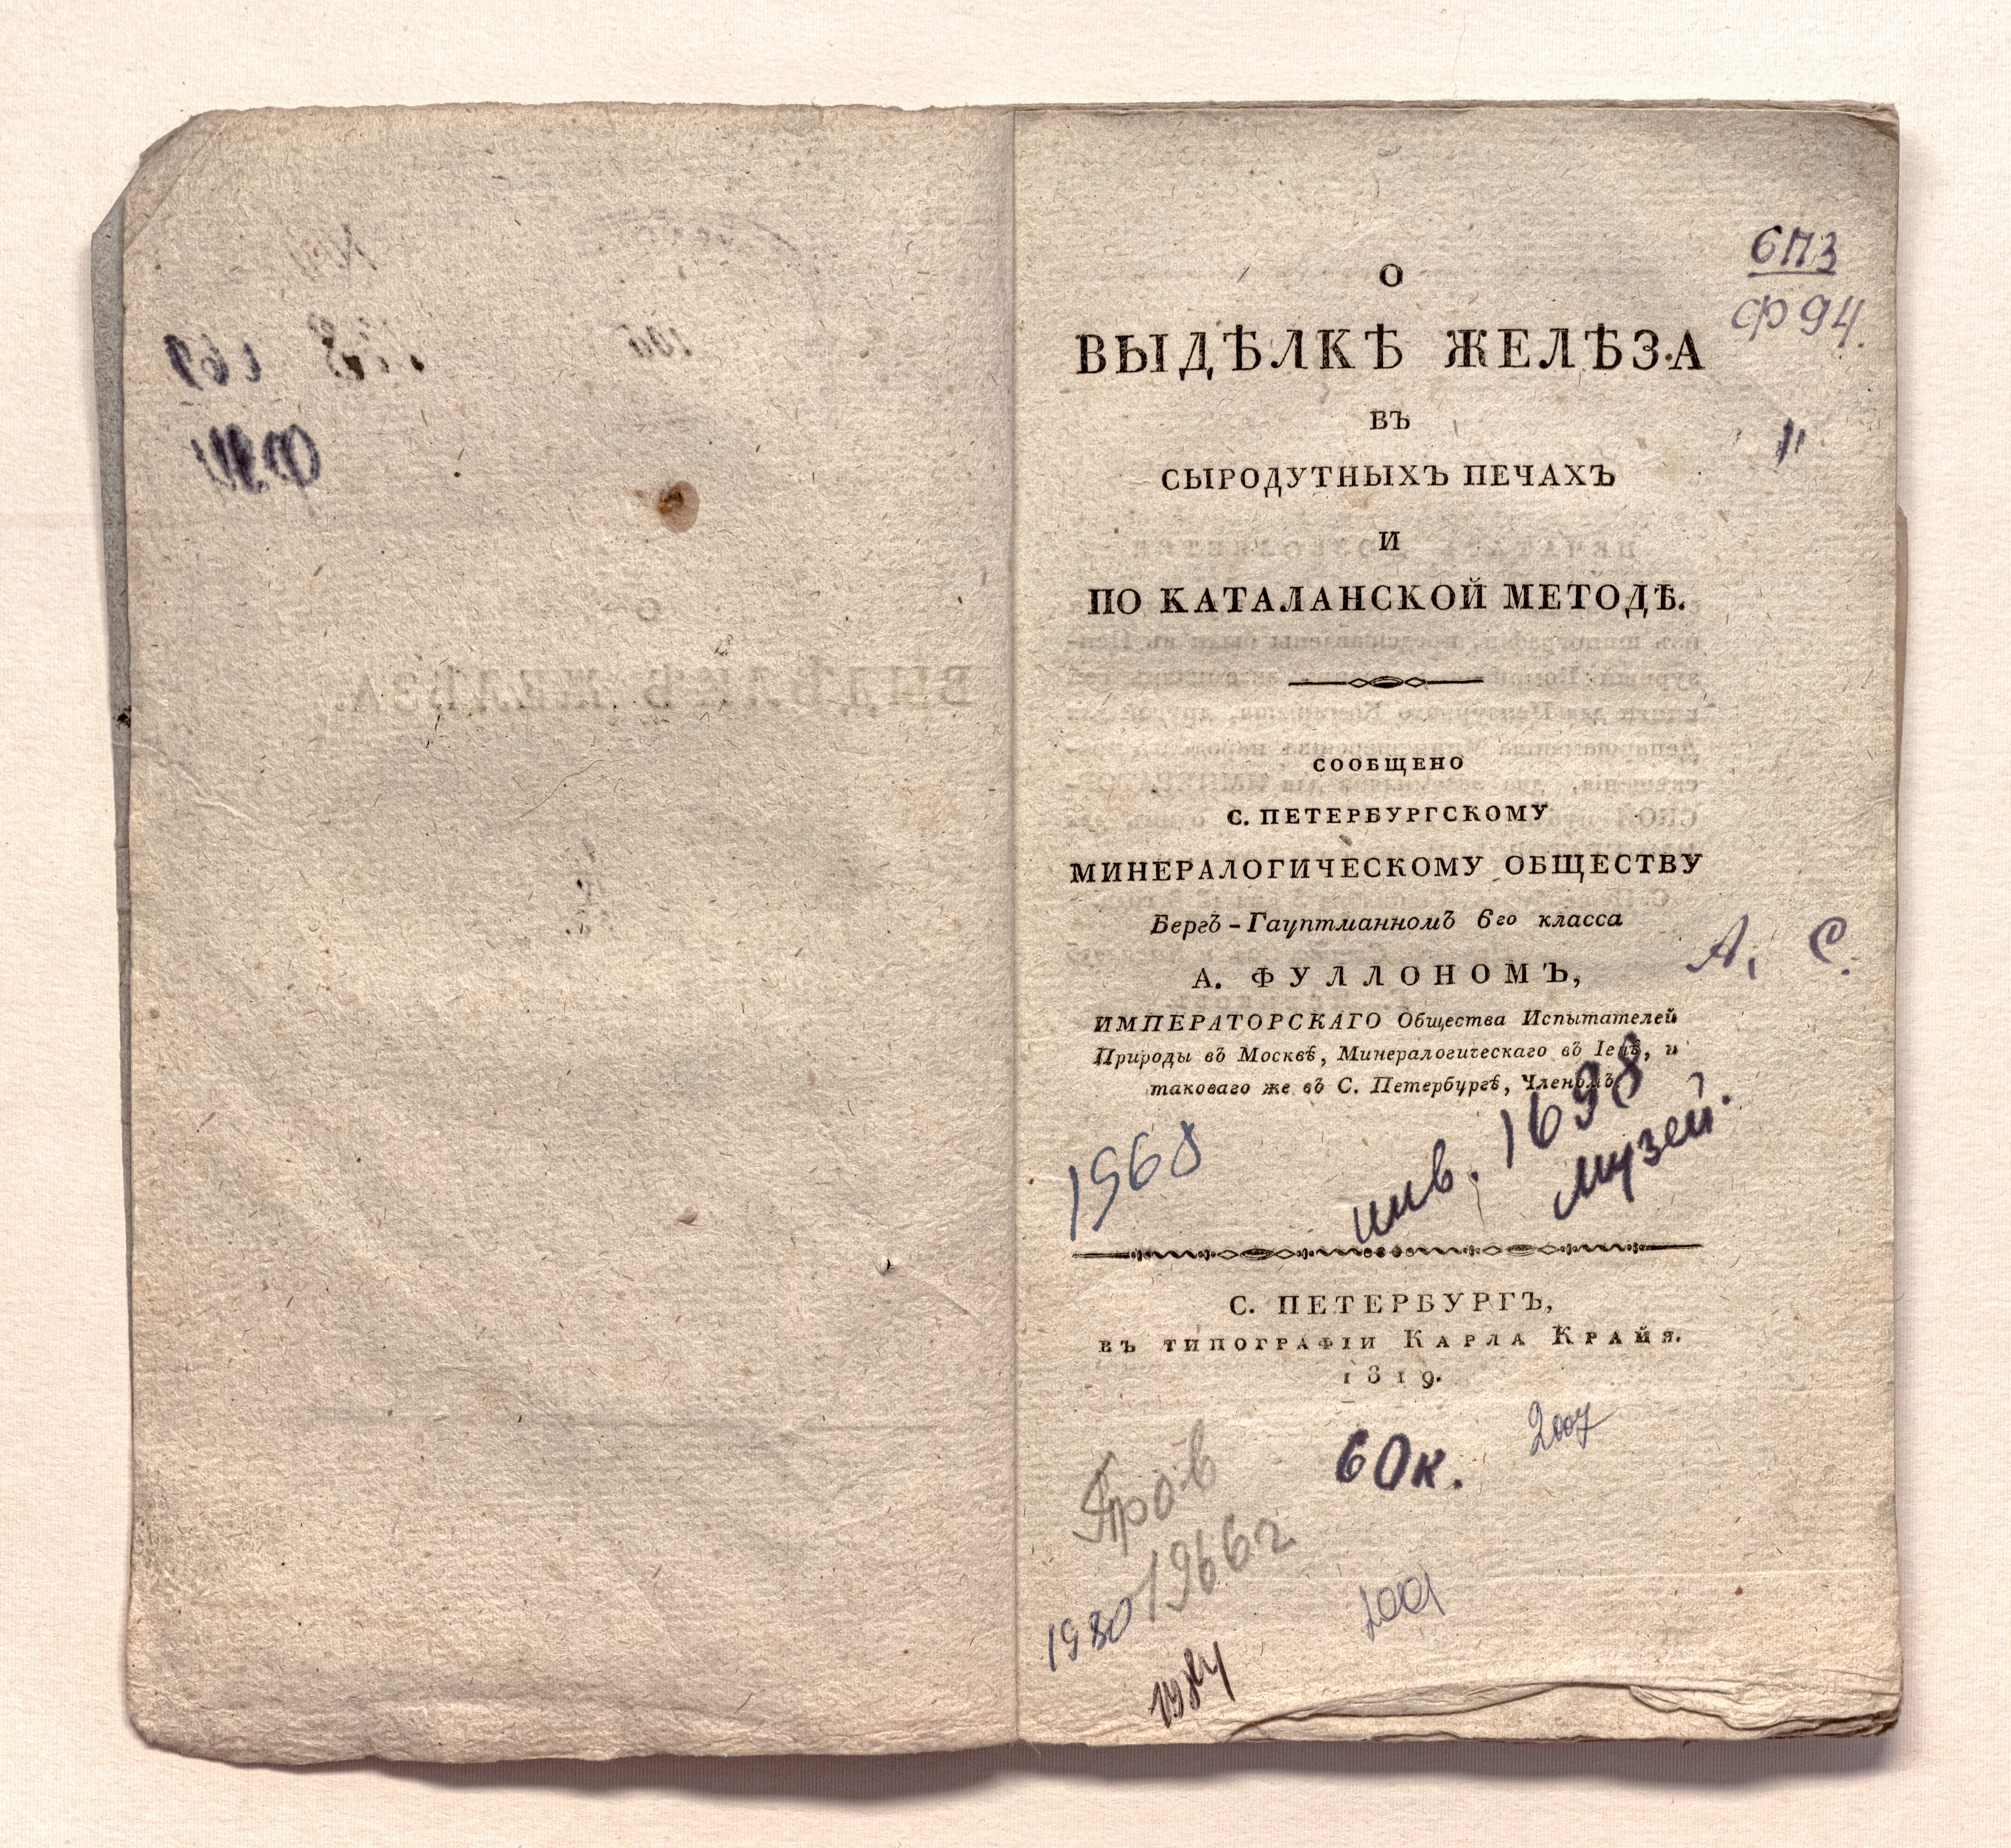 6П3
Ф 94.
О
ВЫДѢЛКѢ ЖЕЛѢЗА
ВЪ
СЫРОДУТНЫХЪ ПЕЧАХЪ
И
ПО КАТАЛАНСКОЙ МЕТОДѢ.
СООБЩЕНО
С. ПЕТЕРБУРГСКОМУ
МИНЕРАЛОГИЧЕСКОМУ ОБЩЕСТВУ
Бергъ-Гауптманномъ 6го класса
А. ФУЛЛОНОМЪ,
А. С.
ИМПЕРАТОРСКАГО Общества Испытателей
Природы въ Москвѣ, Минералогическаго въ Іенѣ, и
таковаго же въ С. Петербургѣ, Членомъ
1968
инв. 1698
музей.
С. ПЕТЕРБУРГЪ,
ВЪ ТИПОГРАФІИ КАРЛА КРАЙЯ.
1819.
60к.
2007
Пров
1966г
1980
1984